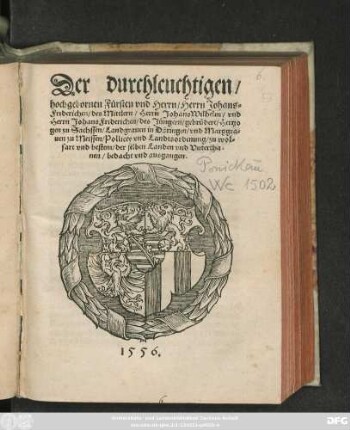 Der durchleuchtigen/
hochgebornen Fürsten vnd Herrn/ Herrn Johans-
Friderichen/ des Mitlern/ Herrn Johans Wilhelm/ vnd
Herrn Johans Friderich/ des Jüngern/ gebrüdere/ Hertzo
gen zu Sachssen/ Landgrauen in Düringen/ vnd Marggra-
uen zu Meissen/ Policey vnd Landtsordenung/ zu wol-
fart vnd bestem/ der selben Landen vnd Vnterthа-
nen/ bedacht und ausgangen.
6.
Ponickau
Wc 1502
1556.
6
DFG